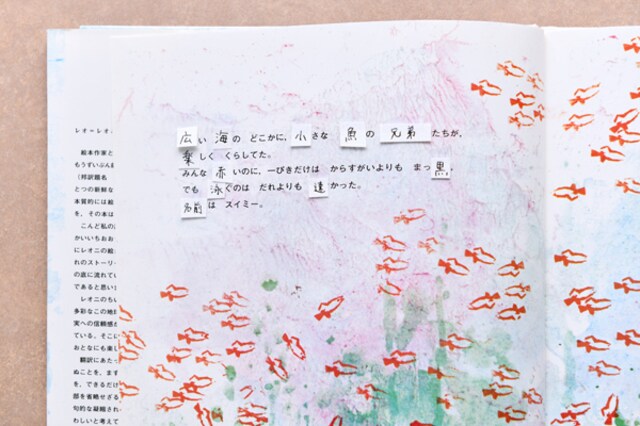 広い 海の どこかに、小さな 魚の 兄弟たちが、
楽しく くらしてた。
みんな 赤いのに、一ぴきだけは からすがいよりも まっ黒、
でも 泳ぐのは だれよりも 速かった。
名前は スイミー。
レオ=レオ
絵本作家と
もうずいぶん前
（邦訳題名
とつの新鮮な
本質的には絵
を、その本は
こんど私の
かいいちおお
にレオニの絵
れのストーリ
の底に流れてい
であると思いま
レオニのちい
多彩なこの地
実への信頼感か
ている。そこに
おとなにも楽し
翻訳にあたっ
ぬことを、まず
を、できるだけ
部を省略せざる
句的な凝縮され
わしいと考えて